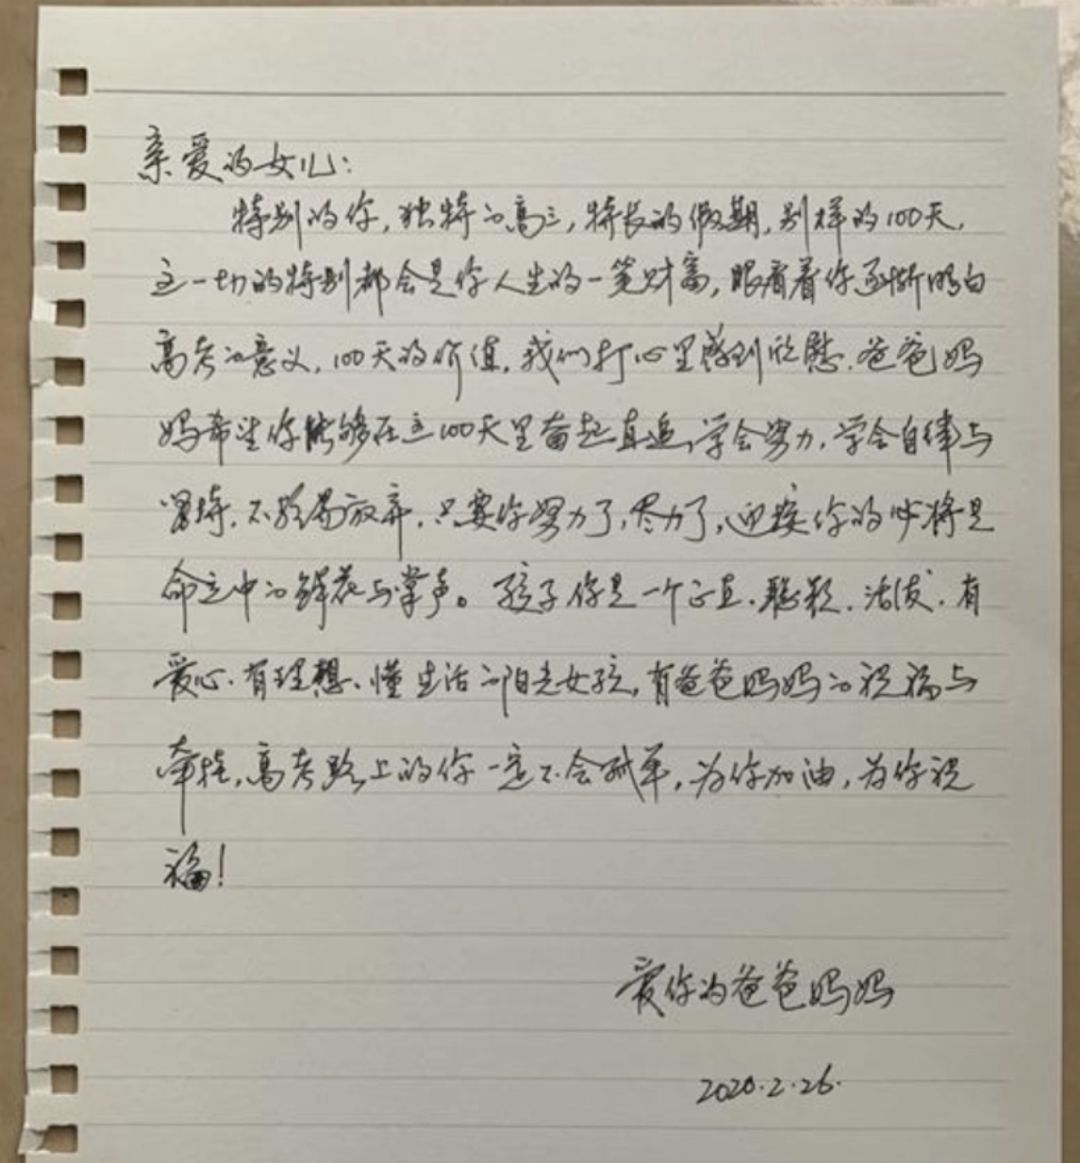 亲爱的女儿:
特别的你,独特的高三,特长的假期,别样的100天,
这一切的特别都会是你人生的一笔财富,眼看着你逐渐明白
高考的意义,100天的价值,我们打心里感到欣慰.爸爸妈
妈希望你能够在这100天里奋起直追,学会努力,学会自律与
坚持,不轻易放弃,只要你努力了,尽力了,迎接你的必将是
命定中的鲜花与掌声。孩子你是一个正直、聪颖、活泼、有
爱心、有理想、懂生活的阳光女孩,有爸爸妈妈的祝福与
牵挂,高考路上的你一定不会孤单,为你加油,为你祝
福!
爱你的爸爸妈妈
2020.2.26.